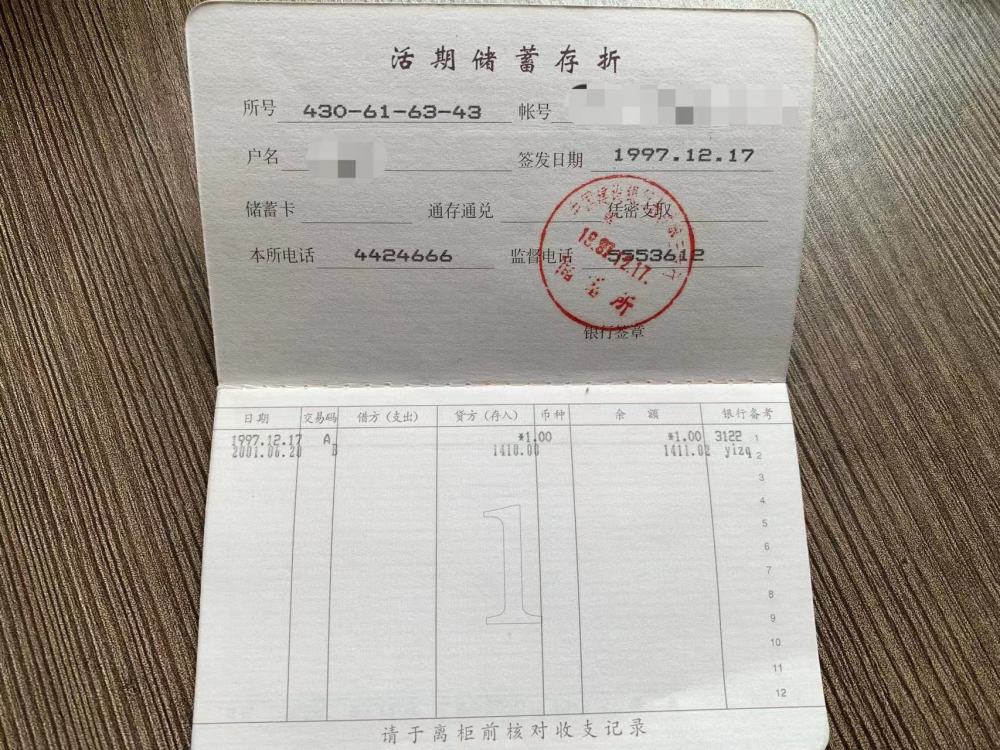 活期储蓄存折
所号 430-61-63-43 帐号
户名 签发日期 1997.12.17
储蓄卡 通存通兑 凭密支取
本所电话 4424666 监督电话 5553612
12.17.
所
银行签章
日期 交易码 借方(支出) 贷方(存入) 币种 余额 银行备考
1997.12.17 A *1.00 *1.00 3122 1
2001.06.20 B 1410.00 1411.02 yizq 2
3
4
5
1
6
7
8
9
10
11
12
请于离柜前核对收支记录